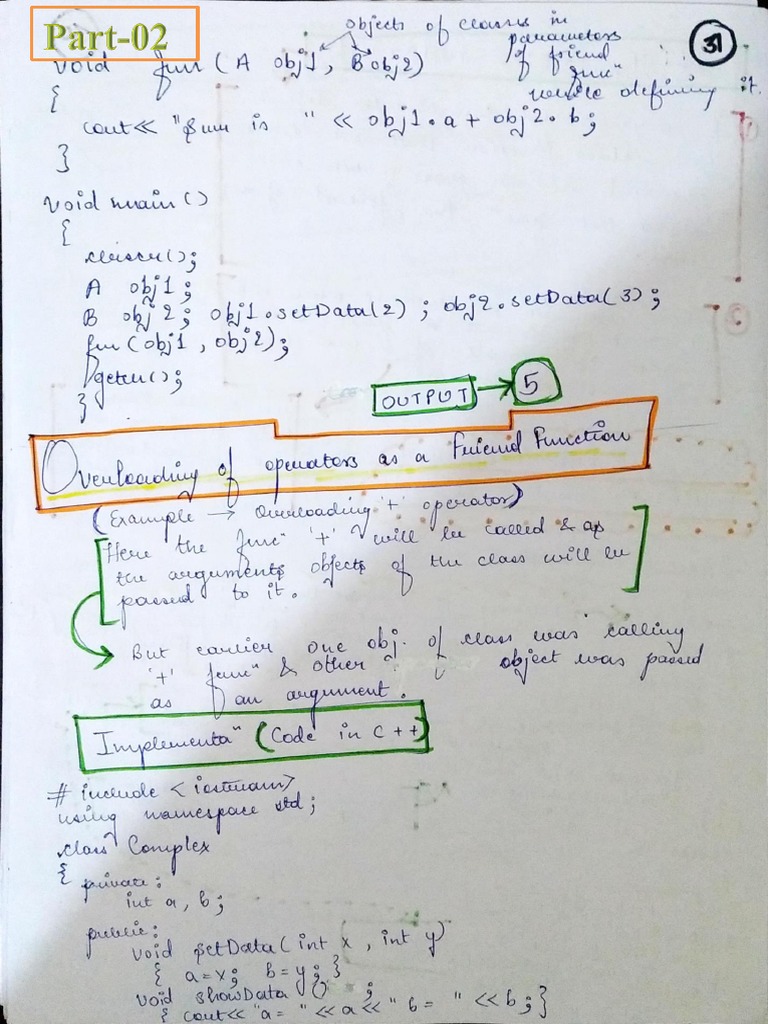 Part-02
objects of classes in
parameters
of friend
func"
while defining it.
31
void fun(A obj1, B obj2)
{
cout<< "Sum is " << obj1.a + obj2.b;
}
void main()
{
clrscr();
A obj1;
B obj2; obj1.setData(2); obj2.setData(3);
fun(obj1, obj2);
getch();
}
OUTPUT → 5
Overloading of operators as a Friend Function
(Example → Overloading '+' operator)
Here the func" '+' will be called & as
the arguments objects of the class will be
passed to it.
But earlier one obj. of class was calling
'+' func" & other object was passed
as an argument.
Implementa" (Code in C++)
# include <iostream>
using namespace std;
class Complex
{ private:
int a, b;
public:
void setData(int x, int y)
{ a=x; b=y; }
void showData();
{ cout<< "a= " <<a<< " b= " <<b; }